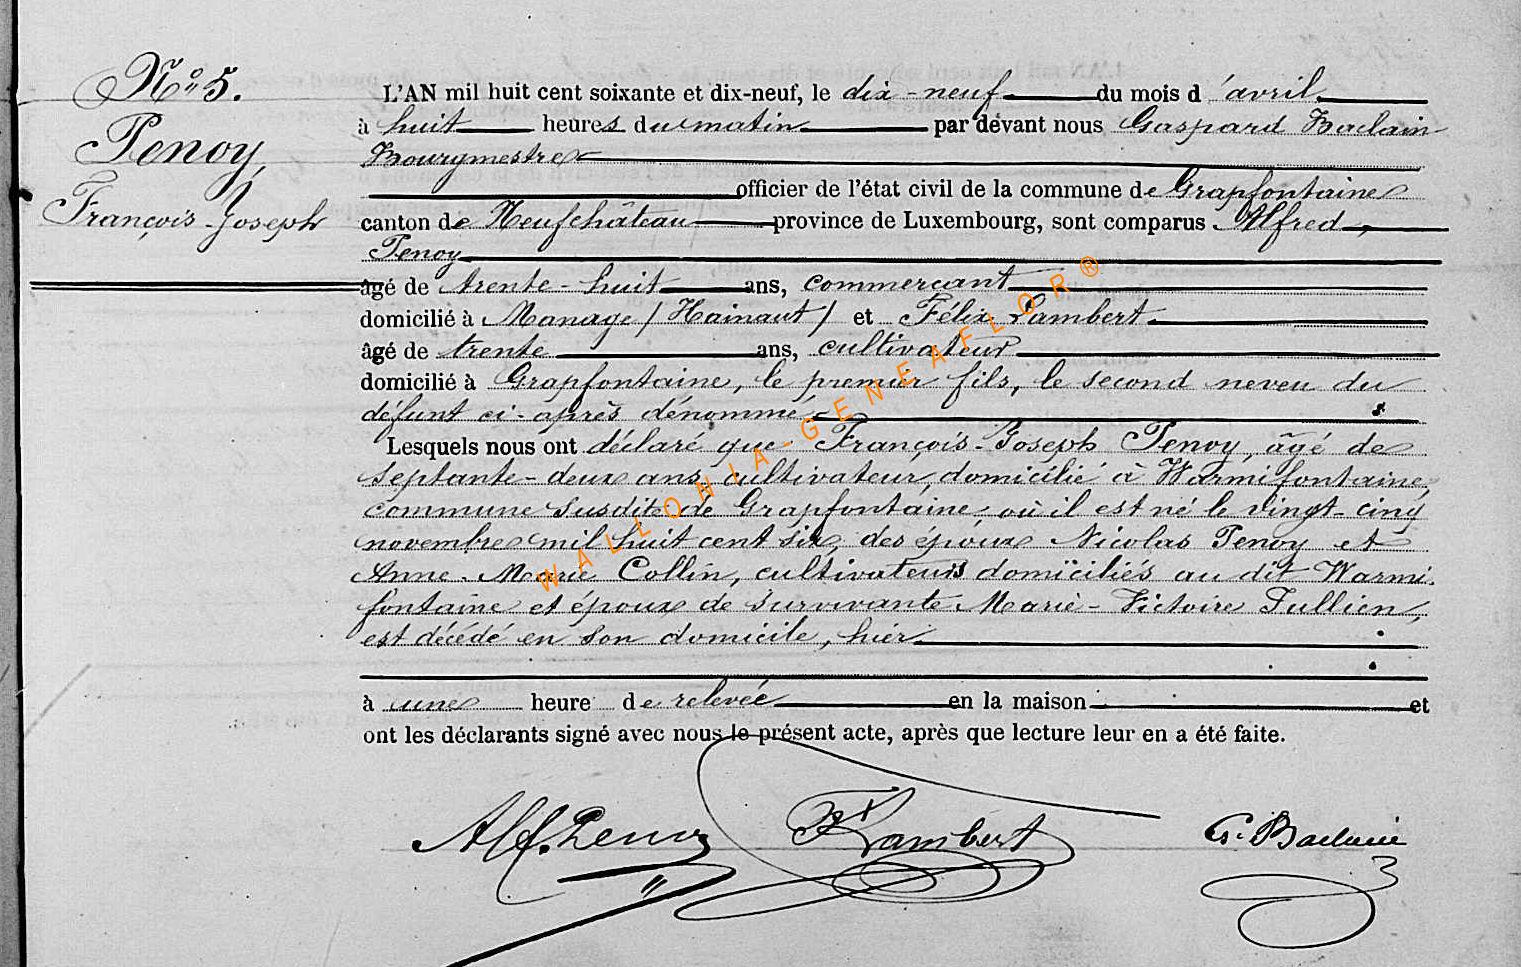 N° 5.
Penoy,
François-Joseph
L'AN mil huit cent soixante et dix-neuf, le dix-neuf du mois d'avril
à huit heures du matin par devant nous Gaspard Baclain
Bourgmestre
officier de l'état civil de la commune de Grapfontaine
canton de Neufchâteau province de Luxembourg, sont comparus Alfred
Penoy
âgé de trente-huit ans, commerçant
domicilié à Manage (Hainaut) et Félix Lambert
âgé de trente ans, cultivateur
domicilié à Grapfontaine, le premier fils, le second neveu du
défunt ci-après dénommé
Lesquels nous ont déclaré que François-Joseph Penoy, âgé de
septante-deux ans, cultivateur, domicilié à Warmifontaine,
commune susdite de Grapfontaine, où il est né le vingt-cinq
novembre mil huit cent six, des époux Nicolas Penoy et
Anne-Marie Collin, cultivateurs domiciliés au dit Warmi-
fontaine et époux de survivante Marie-Victoire Jullien,
est décédé en son domicile, hier
à une heure de relevée en la maison et
ont les déclarants signé avec nous le présent acte, après que lecture leur en a été faite.
Alf. Penoy FLambert G. Baclain
WALLONIA-GENEAFLOR®